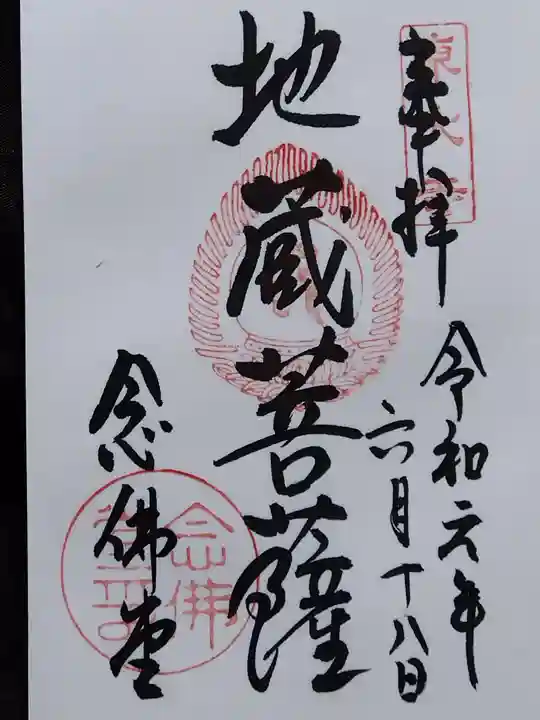 東大寺
奉拝
令和元年
六月十八日
地蔵菩薩
念佛堂
念佛
堂印